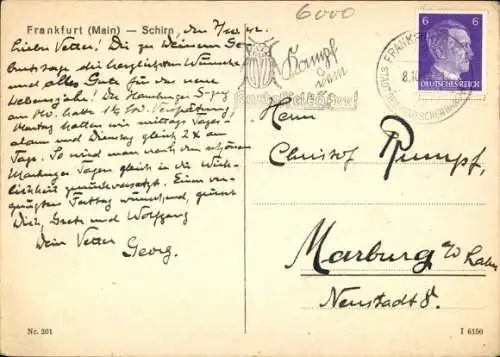 Frankfurt (Main) — Schirn, den 7/10. 42.
Lieber Vetter! Dir zu Deinem Ge-
burtstage die herzlichsten Wünsche
und alles Gute für das neue
Lebensjahr! Der Hamburger S-zug
am hatte 1½ Verspätung,
Montag hatten wir mittags Tages-
alarm und Dienstag gleich 2 x am
Tage. So wird man nach den schönen
Marburger Tagen gleich in die Wirk-
lichkeit zurückversetzt. Einen ver-
gnügten Festtag wünschend, grüsst
Dich, Gretl und Wolfgang
Dein Vetter
Georg.
Nr. 201
6000
Kampf
dem
Kartoffelkäfer!
FRANKF
8.10.
6 6
DEUTSCHES REICH
Herrn
Christof Rumpf,
Marburg a/d Lahn
Neustadt 8.
I 6150